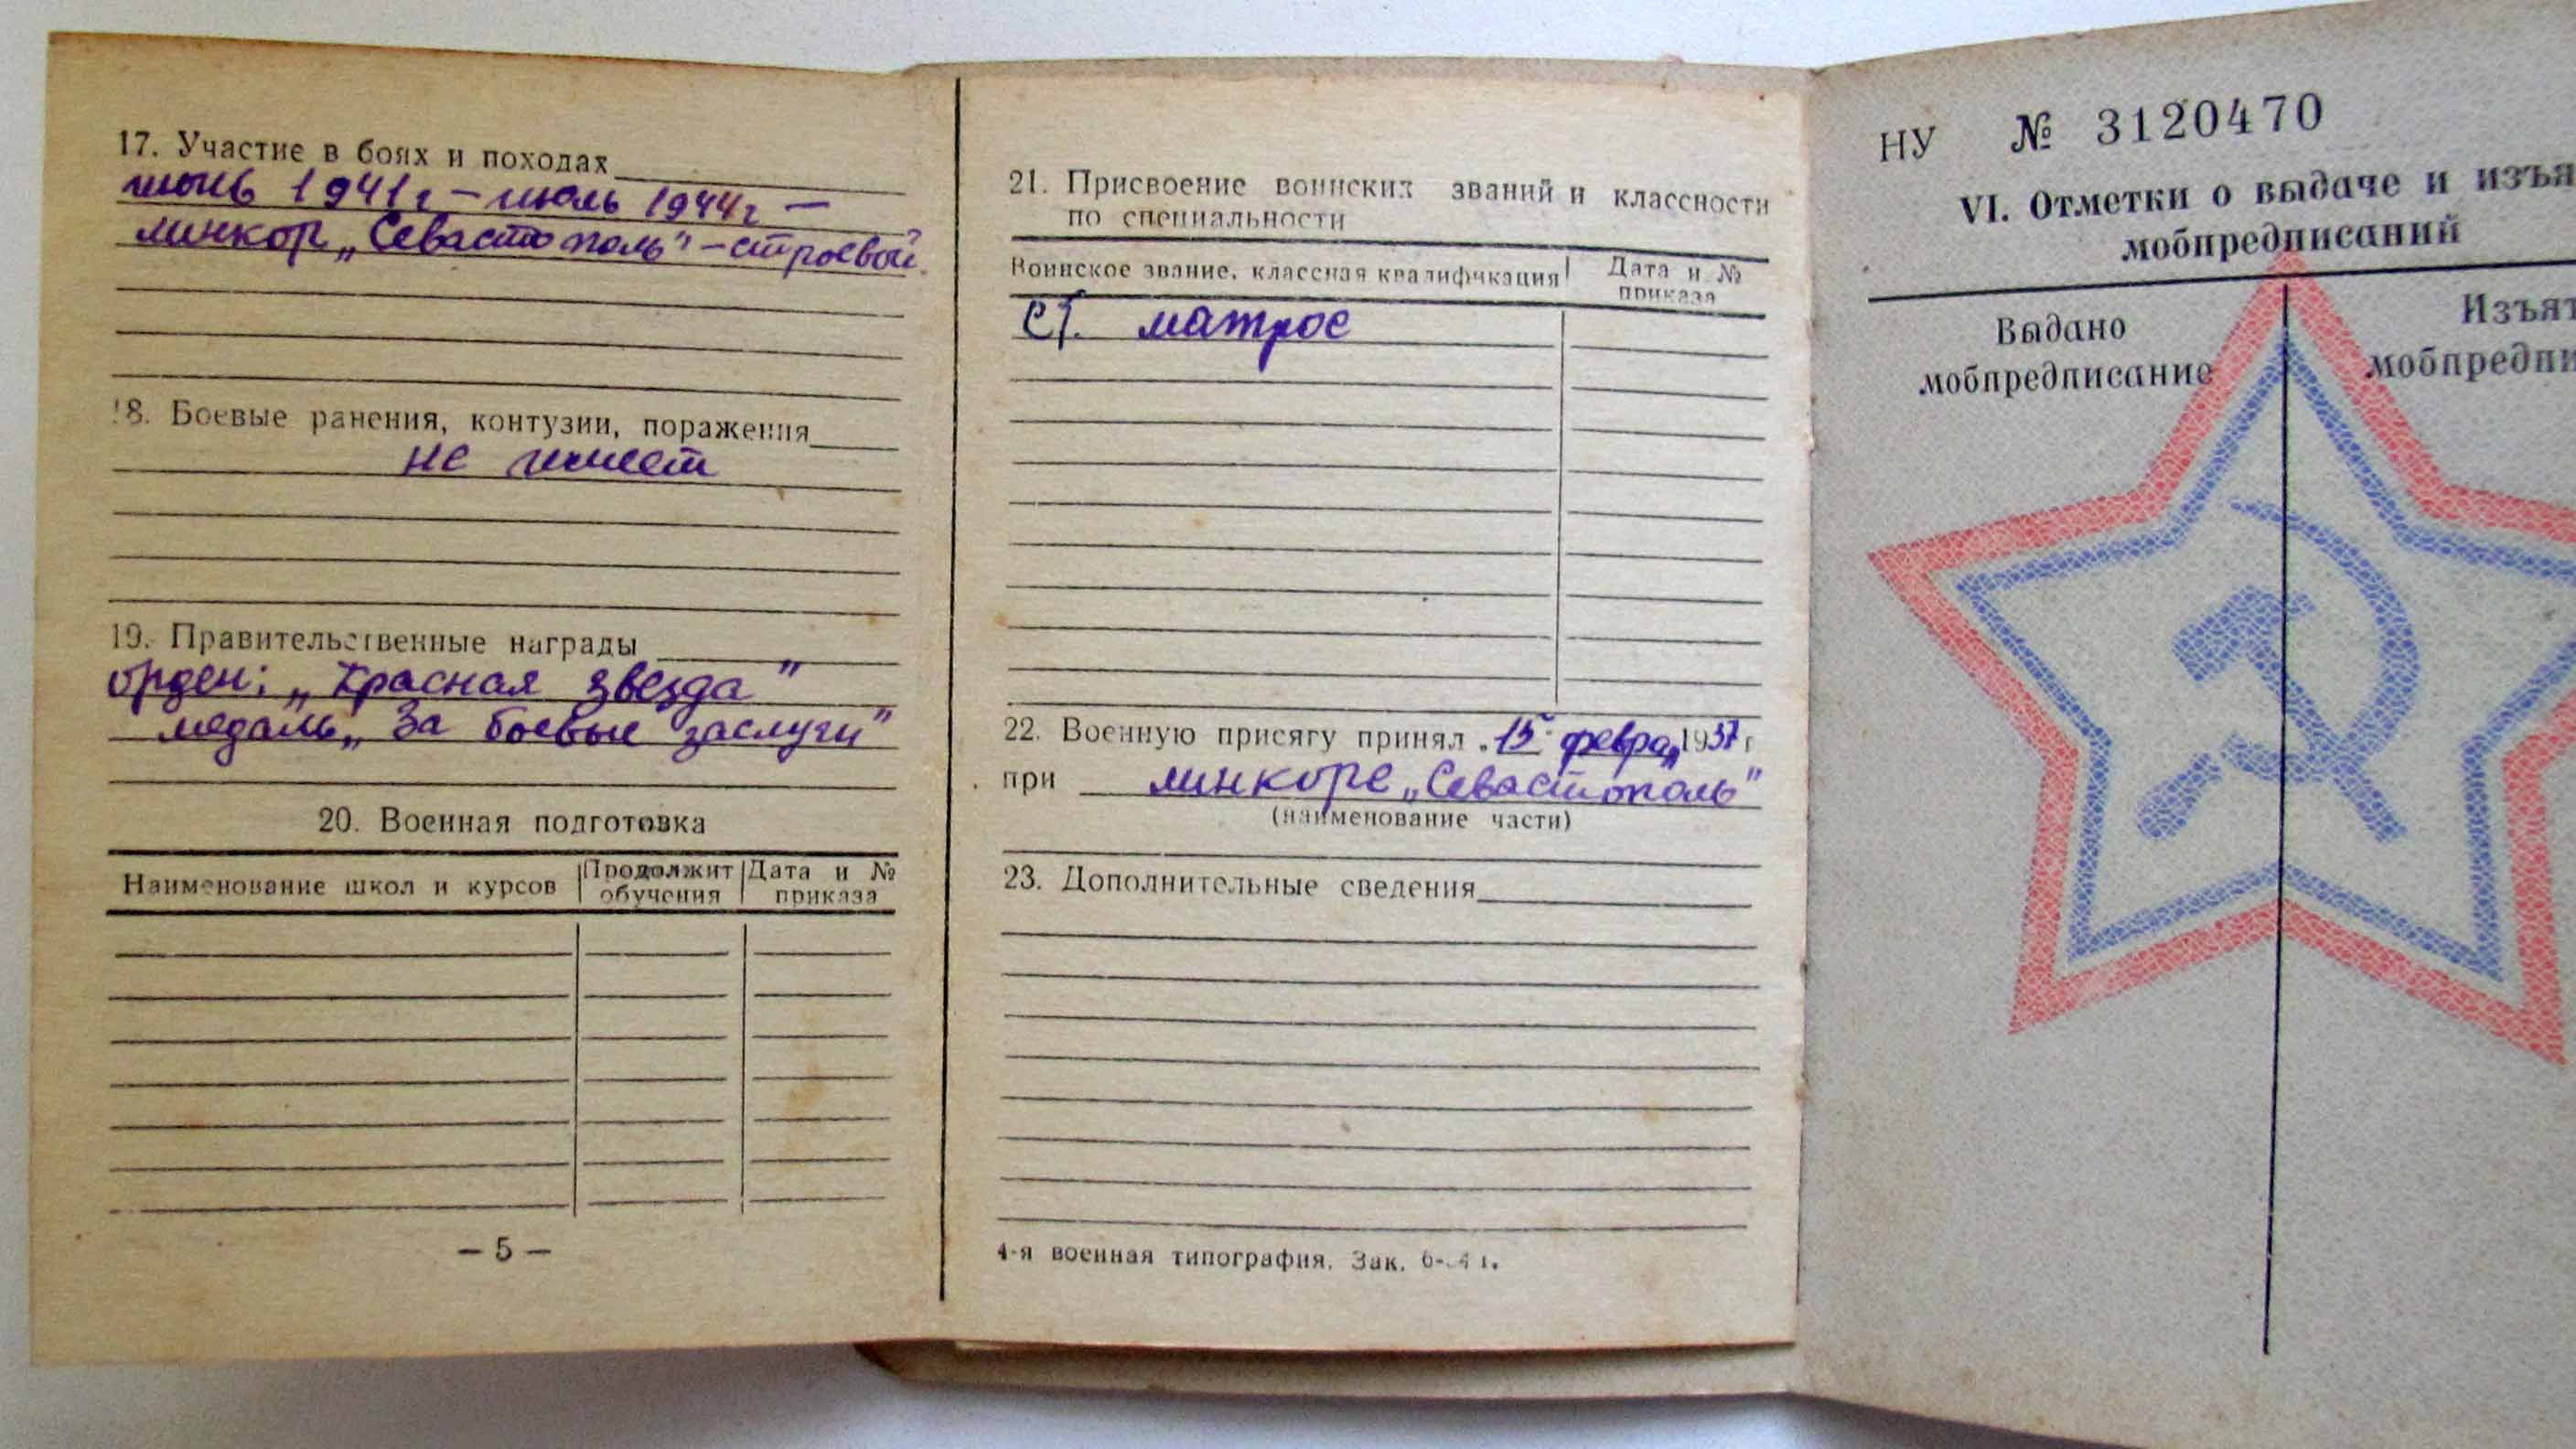 17. Участие в боях и походах
июнь 1941г – июль 1944г –
линкор „Севастополь" – строевой.
18. Боевые ранения, контузии, поражения
не имеет
19. Правительственные награды
орден: „Красная звезда"
медаль „За боевые заслуги"
20. Военная подготовка
Наименование школ и курсов
Продолжит
обучения
Дата и №
приказа
– 5 –
21. Присвоение воинских званий и классности
по специальности
Воинское звание, классная квалификация
Дата и №
приказа
ст. матрос
22. Военную присягу принял „15" февра 1937 г
при линкоре „Севастополь"
(наименование части)
23. Дополнительные сведения
4-я военная типография. Зак.
НУ № 3120470
VI. Отметки о выдаче и изъя
мобпредписаний
Выдано
мобпредписание
Изъят
мобпредпи